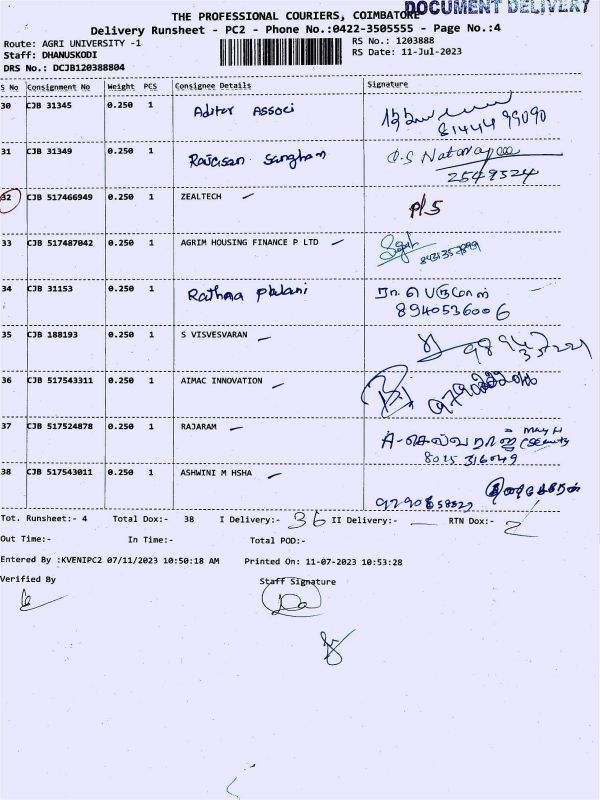 DOCUMENT DELIVERY
THE PROFESSIONAL COURIERS, COIMBATORE
Delivery Runsheet - PC2 - Phone No.:0422-3505555 - Page No.:4
Route: AGRI UNIVERSITY -1 RS No.: 1203888
Staff: DHANUSKODI RS Date: 11-Jul-2023
DRS No.: DCJB120388804
S No Consignment No Weight PCS Consignee Details Signature
30 CJB 31345 0.250 1 Aditor Associ
6144499090
31 CJB 31349 0.250 1 Sangham O.S Natarajan
2549524
32 CJB 517466949 0.250 1 ZEALTECH P/S
33 CJB 517487042 0.250 1 AGRIM HOUSING FINANCE P LTD
34 CJB 31153 0.250 1 Rathna ரா. பெருமாள்
8940536006
35 CJB 188193 0.250 1 S VISVESVARAN
36 CJB 517543311 0.250 1 AIMAC INNOVATION
37 CJB 517524878 0.250 1 RAJARAM
A-செல்வராஜ்
38 CJB 517543011 0.250 1 ASHWINI M HSHA
Tot. Runsheet:- 4 Total Dox:- 38 I Delivery:- 36 II Delivery:- — RTN Dox:- 2
Out Time:- In Time:- Total POD:-
Entered By :KVENIPC2 07/11/2023 10:50:18 AM Printed On: 11-07-2023 10:53:28
Verified By Staff Signature